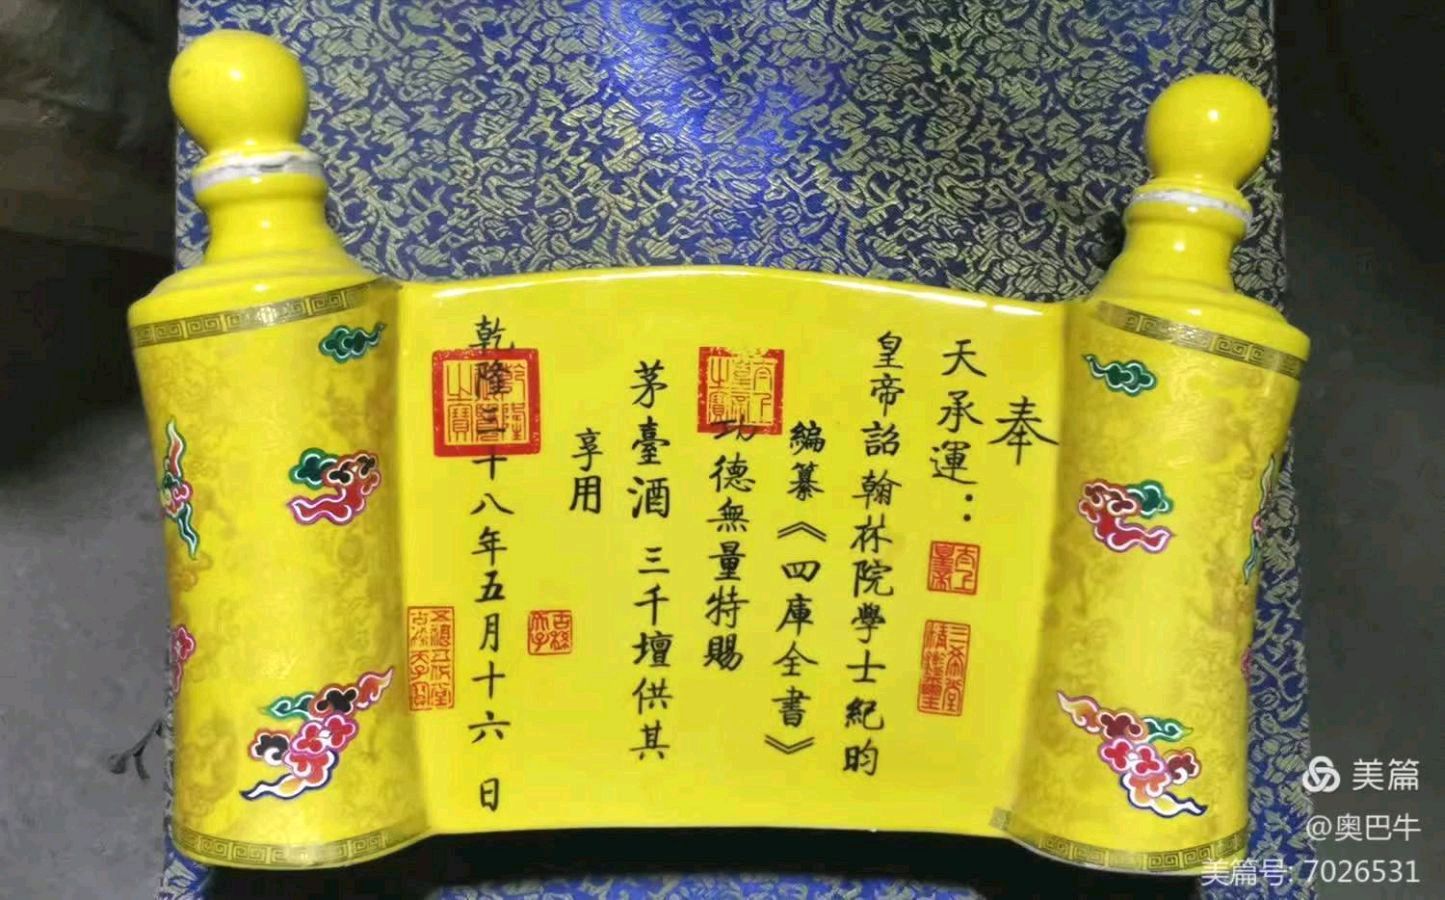 奉
天承運：
皇帝詔 翰林院學士紀昀
編纂《四庫全書》
功德無量特賜
茅臺酒 三千壇供其
享用
乾隆三十八年五月十六日
美篇
@奥巴牛
美篇号: 7026531